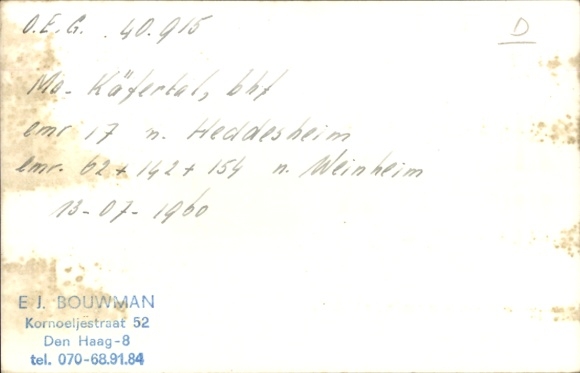 O.E.G. 40.915
D
Ma- Käfertal, bhf
emr 17 n. Heddesheim
emr. 62 + 142 + 154 n. Weinheim
13-07-1960
E J. BOUWMAN
Kornoeljestraat 52
Den Haag-8
tel. 070-68.91.84